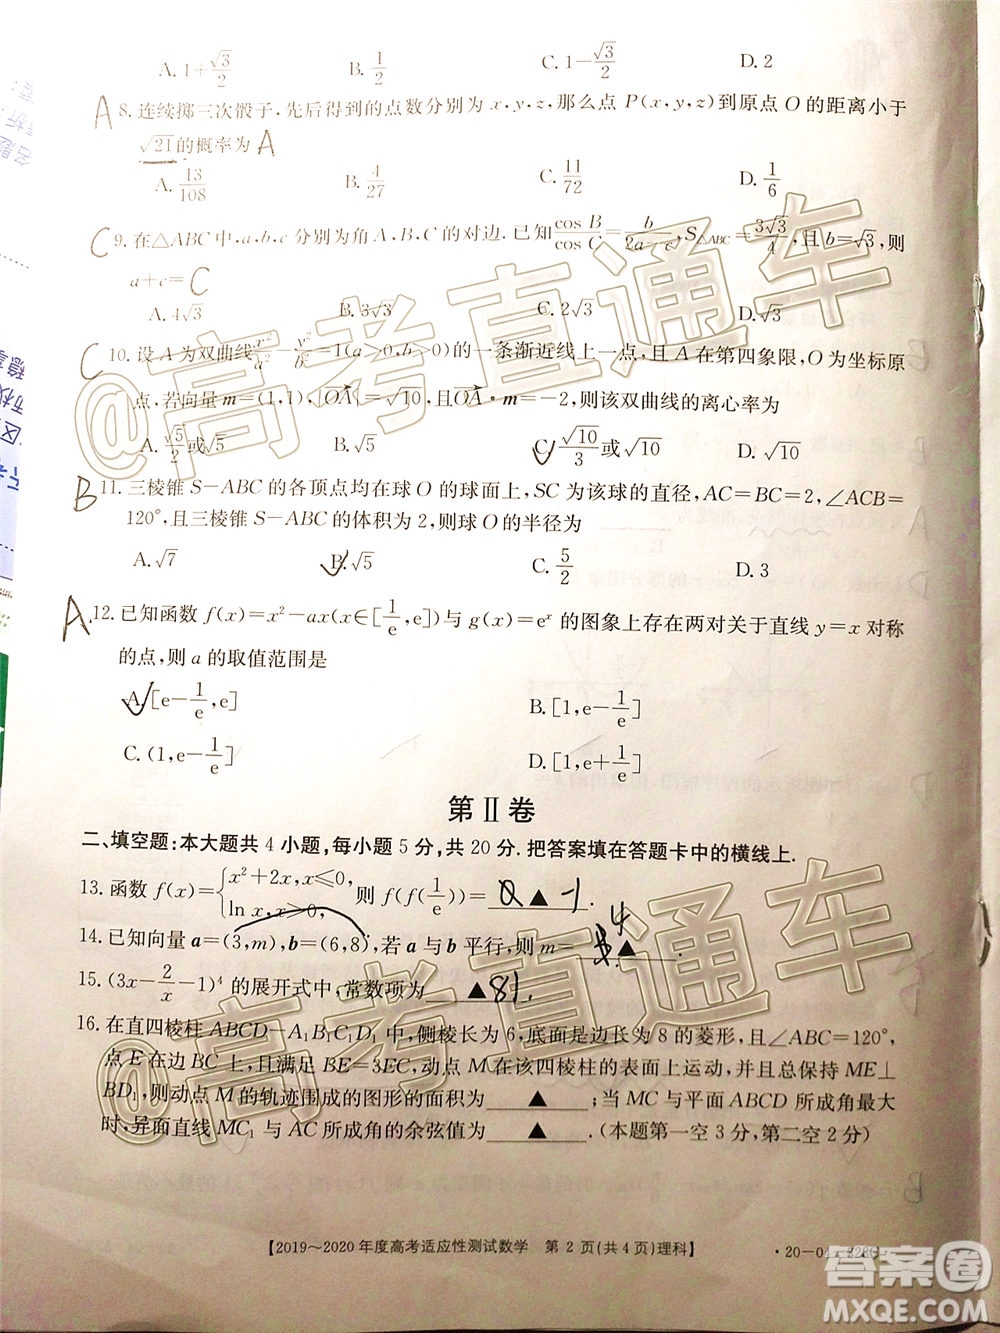 A. 1+√3/2  B. 1/2  C. 1-√3/2  D. 2
A 8. 连续掷三次骰子,先后得到的点数分别为 x,y,z,那么点 P(x,y,z)到原点 O 的距离小于
√21的概率为 A
A. 13/108  B. 4/27  C. 11/72  D. 1/6
C 9. 在△ABC中,a,b,c分别为角A,B,C的对边.已知cos B/cos C=b/(2a-c),S△ABC=3√3/4,且b=√3,则
a+c= C
A. 4√3  B. 3√3  C. 2√3  D. √3
C 10. 设 A 为双曲线x²/a²-y²/b²=1(a>0,b>0)的一条渐近线上一点,且 A 在第四象限,O 为坐标原
点,若向量 m=(1,1),|OA|=√10,且OA·m=-2,则该双曲线的离心率为
A. √5/2或√5  B. √5  C. √10/3或√10  D. √10
B 11. 三棱锥 S-ABC 的各顶点均在球 O 的球面上,SC 为该球的直径,AC=BC=2,∠ACB=
120°,且三棱锥 S-ABC 的体积为 2,则球 O 的半径为
A. √7  B. √5  C. 5/2  D. 3
A 12. 已知函数 f(x)=x²-ax(x∈[1/e,e])与 g(x)=eˣ 的图象上存在两对关于直线 y=x 对称
的点,则 a 的取值范围是
A. [e-1/e,e]  B. [1,e-1/e]
C. (1,e-1/e]  D. [1,e+1/e]
第Ⅱ卷
二、填空题:本大题共 4 小题,每小题 5 分,共 20 分. 把答案填在答题卡中的横线上.
13. 函数 f(x)={x²+2x,x≤0, ln x,x>0, 则 f(f(1/e))= ▲ -1 .
14. 已知向量 a=(3,m),b=(6,8),若 a 与 b 平行,则 m= 4 ▲ .
15. (3x-2/x-1)⁴ 的展开式中,常数项为 ▲ 81.
16. 在直四棱柱 ABCD-A₁B₁C₁D₁ 中,侧棱长为 6,底面是边长为 8 的菱形,且∠ABC=120°,
点 E 在边 BC 上,且满足 BE=3EC,动点 M 在该四棱柱的表面上运动,并且总保持 ME⊥
BD₁,则动点 M 的轨迹围成的图形的面积为 ▲ ;当 MC 与平面 ABCD 所成角最大
时,异面直线 MC₁ 与 AC 所成角的余弦值为 ▲ .(本题第一空 3 分,第二空 2 分)
【2019~2020 年度高考适应性测试数学 第 2 页(共 4 页)理科】
@高考直通车
@高考直通车
答案圈
MXQE.COM